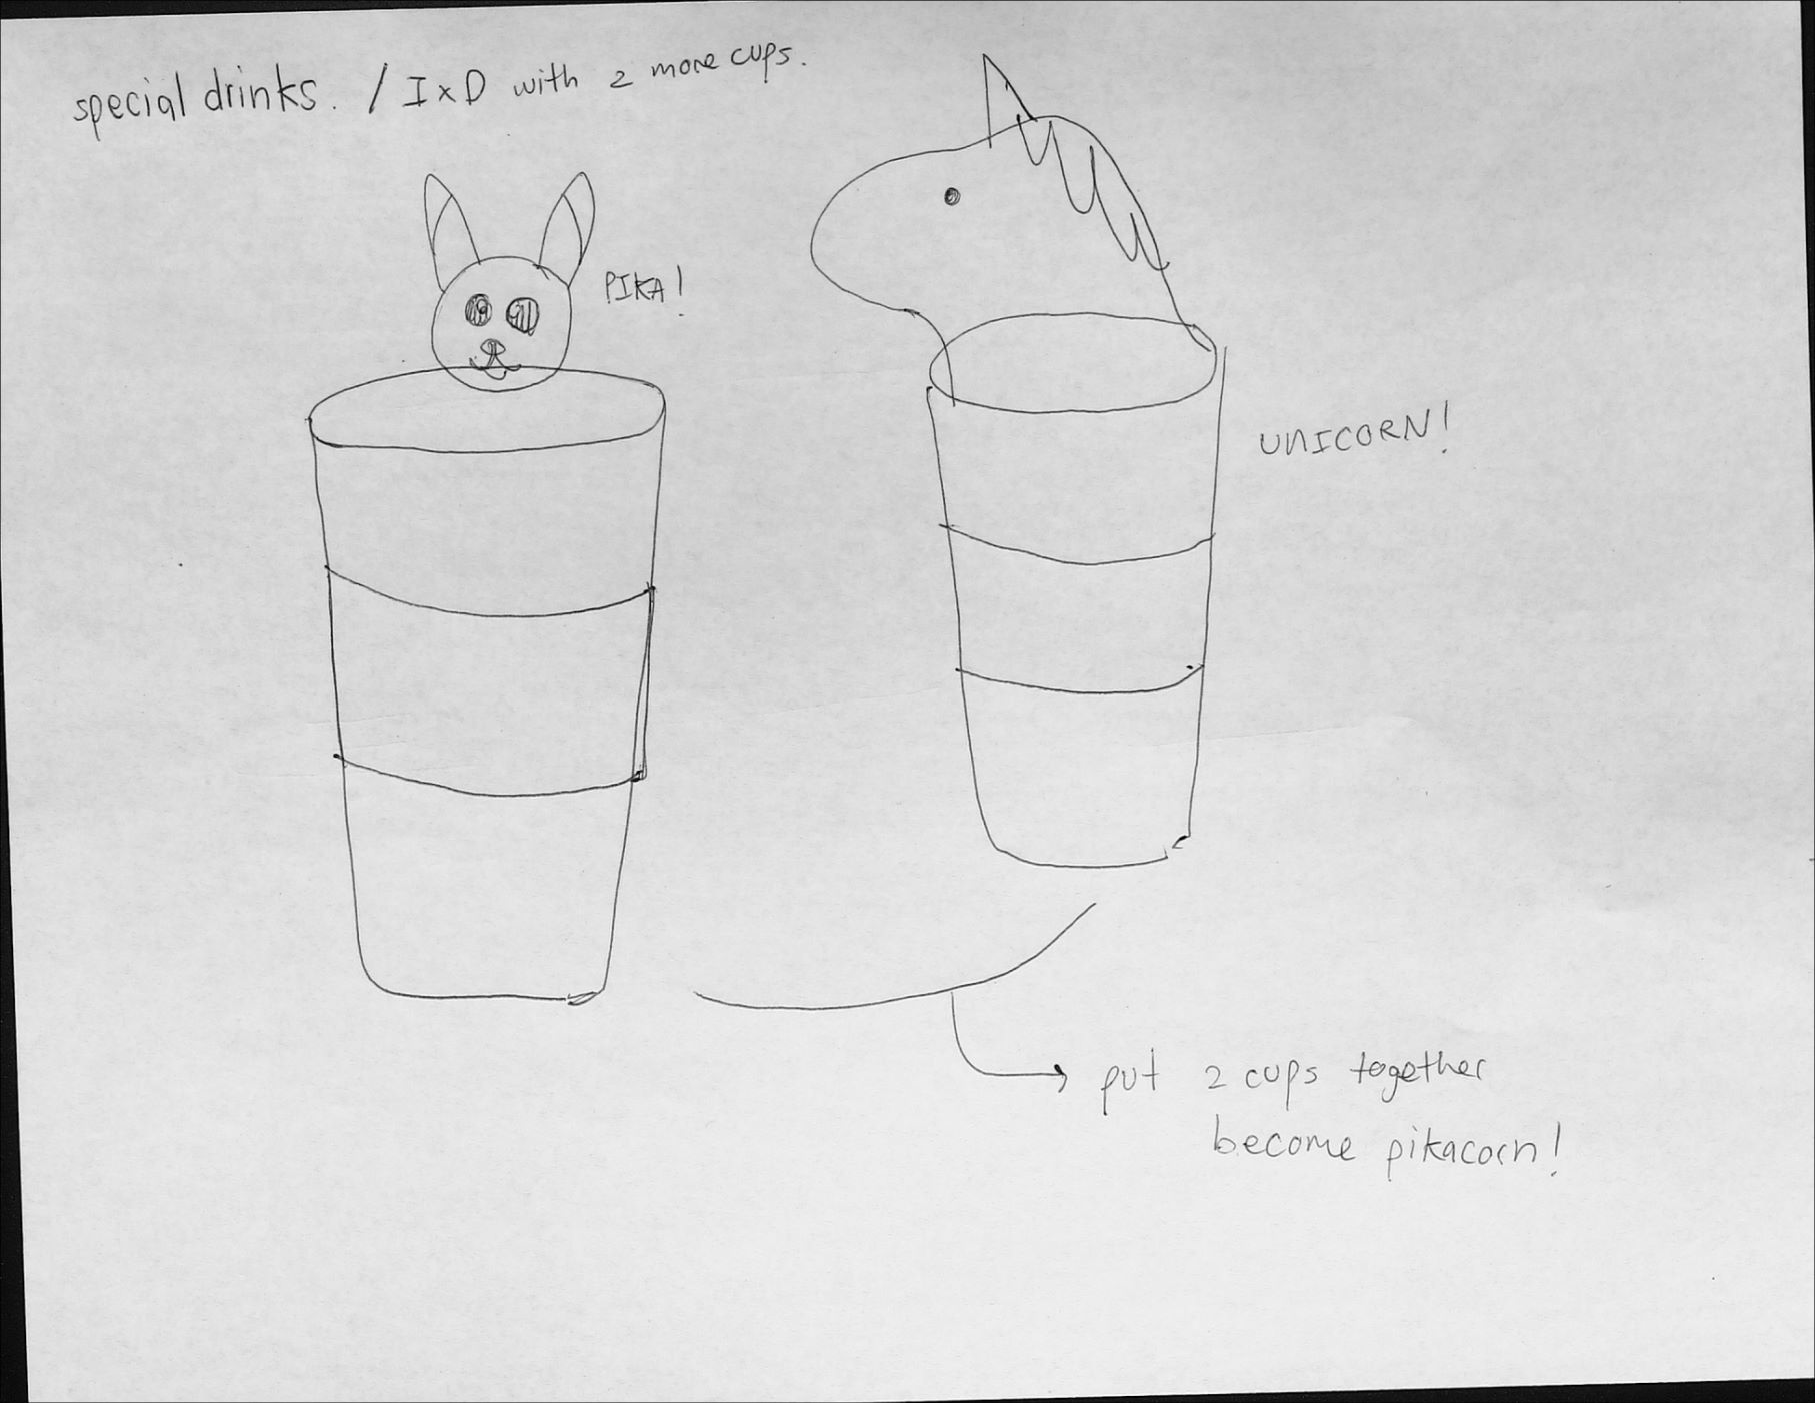 special drinks. / IxD with 2 more cups.
PIKA!
UNICORN!
put 2 cups together
become pikacorn!